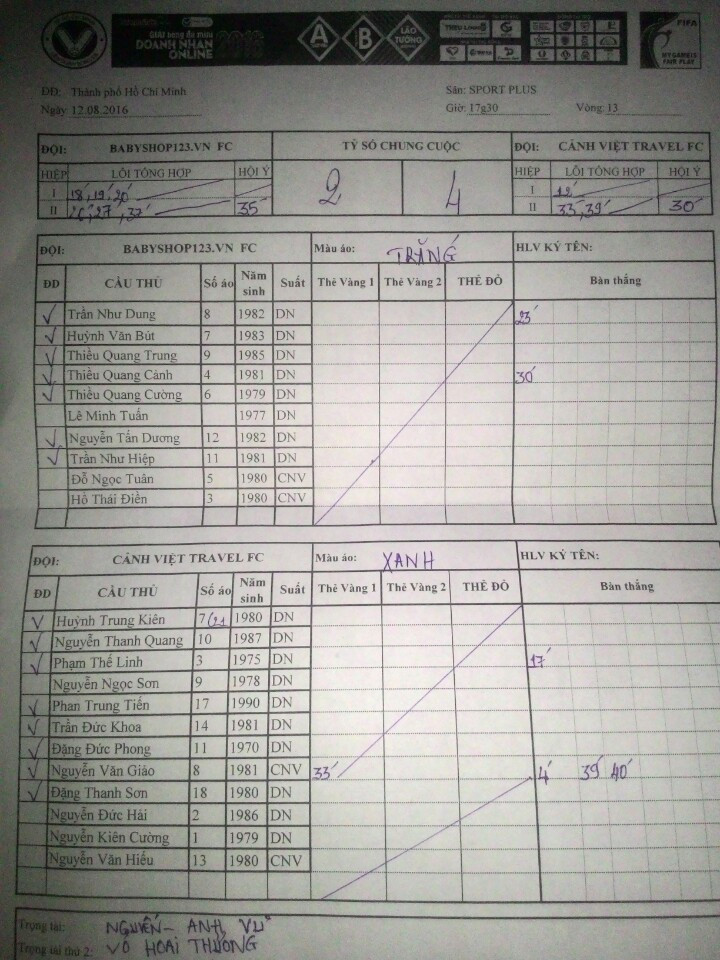 GIẢI bóng đá mini
DOANH NHÂN
ONLINE 2016
A B LÃO TƯỚNG
FIFA
MY GAME IS
FAIR PLAY
ĐĐ: Thành phố Hồ Chí Minh Sân: SPORT PLUS
Ngày: 12.08.2016 Giờ: 17g30 Vòng: 13
ĐỘI: BABYSHOP123.VN FC TỶ SỐ CHUNG CUỘC ĐỘI: CẢNH VIỆT TRAVEL FC
HIỆP LỖI TỔNG HỢP HỘI Ý 2 4 HIỆP LỖI TỔNG HỢP HỘI Ý
I 18', 19', 20' I 12'
II 26', 27', 37' 35' II 33', 39' 30'
ĐỘI: BABYSHOP123.VN FC Màu áo: TRẮNG HLV KÝ TÊN:
ĐD CẦU THỦ Số áo Năm sinh Suất Thẻ Vàng 1 Thẻ Vàng 2 THẺ ĐỎ Bàn thắng
Trần Như Dung 8 1982 DN 23'
Huỳnh Văn Bút 7 1983 DN
Thiều Quang Trung 9 1985 DN
Thiều Quang Cảnh 4 1981 DN 30'
Thiều Quang Cường 6 1979 DN
Lê Minh Tuấn 1977 DN
Nguyễn Tấn Dương 12 1982 DN
Trần Như Hiệp 11 1981 DN
Đỗ Ngọc Tuân 5 1980 CNV
Hồ Thái Điền 3 1980 CNV
ĐỘI: CẢNH VIỆT TRAVEL FC Màu áo: XANH HLV KÝ TÊN:
ĐD CẦU THỦ Số áo Năm sinh Suất Thẻ Vàng 1 Thẻ Vàng 2 THẺ ĐỎ Bàn thắng
Huỳnh Trung Kiên 7 (21 1980 DN
Nguyễn Thanh Quang 10 1987 DN
Phạm Thế Linh 3 1975 DN 17'
Nguyễn Ngọc Sơn 9 1978 DN
Phan Trung Tiến 17 1990 DN
Trần Đức Khoa 14 1981 DN
Đặng Đức Phong 11 1970 DN
Nguyễn Văn Giáo 8 1981 CNV 33' 4' 39' 40'
Đặng Thanh Sơn 18 1980 DN
Nguyễn Đức Hải 2 1986 DN
Nguyễn Kiên Cường 1 1979 DN
Nguyễn Văn Hiếu 13 1980 CNV
Trọng tài: NGUYỄN ANH VŨ
Trọng tài thứ 2: VÕ HOÀI THƯƠNG